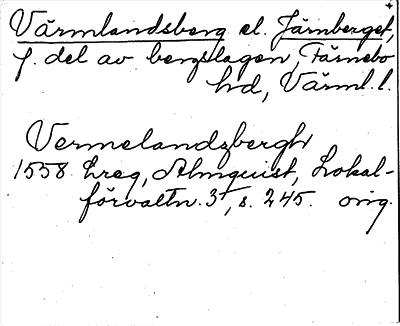 Värmlandsberg el. Järnberget,
f. del av bergslagen, Färnebo
hd, Värml. l.
Vermelandzbergh
1558 Lreg, Almquist, Lokal-
förvaltn. 3, s. 245. orig.